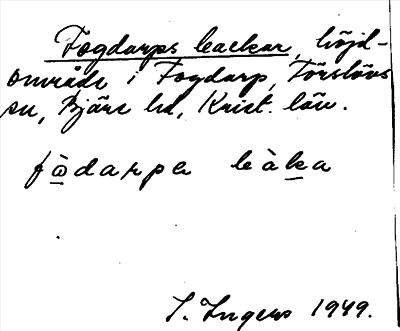 Fogdarps backar, höjd-
område i Fogdarp, Förslövs
sn, Bjäre hd, Krist. län.
fòdarpa bàka
I. Ingers 1949.